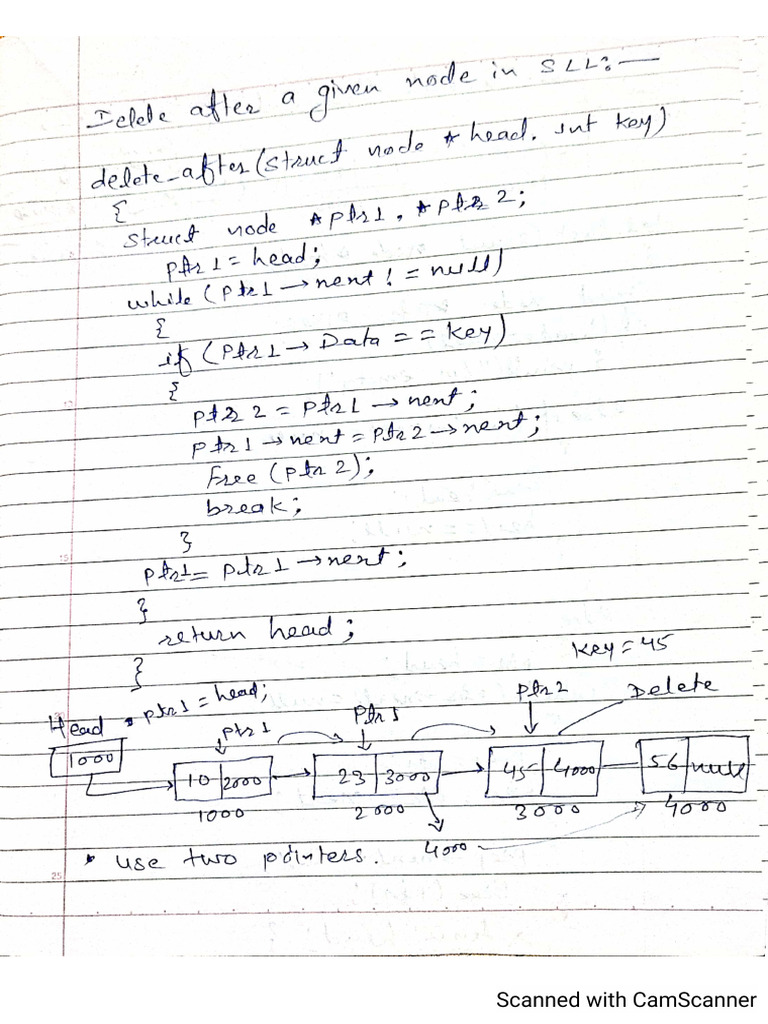 Delete after a given node in SLL:—
delete_after(struct node *head, int key)
{
struct node *ptr1, *ptr2;
ptr1 = head;
while (ptr1→next != null)
{
if (ptr1→Data == key)
{
ptr2 = ptr1→next;
ptr1→next = ptr2→next;
free (ptr2);
break;
}
ptr1 = ptr1→next;
}
return head;
}
key = 45
Head • ptr1 = head;
ptr1 ptr1 ptr2 Delete
1000
10 2000 23 3000 45 4000 56 null
1000 2000 3000 4000
4000
• use two pointers.
15
25
Scanned with CamScanner